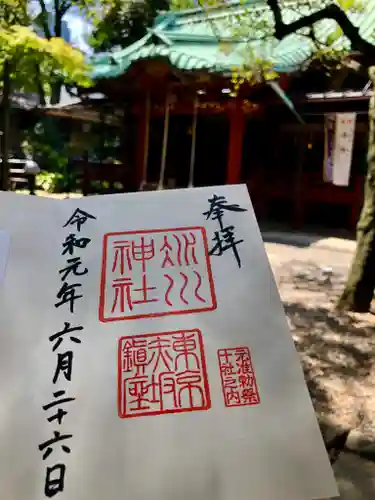 奉拝
氷川
神社
東京
赤坂
鎮座
元准勅祭
十社之内
令和元年六月二十六日